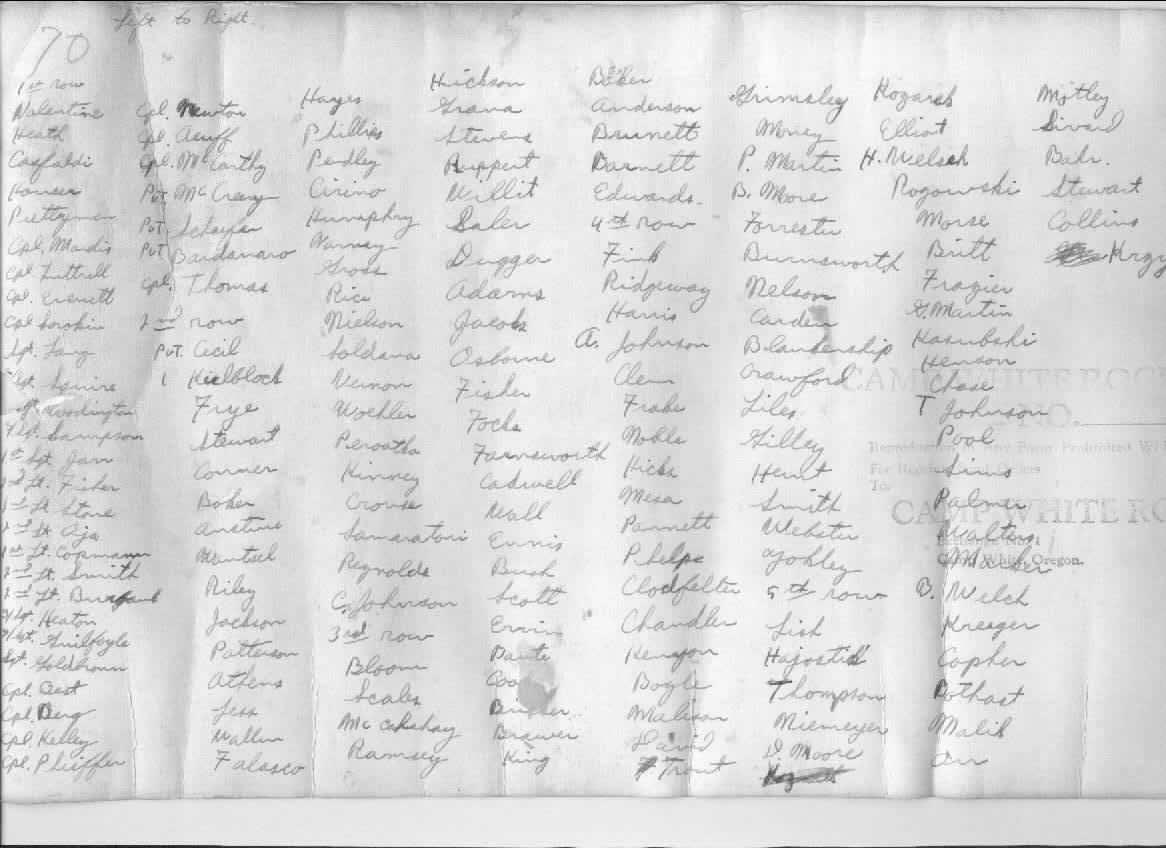 Left to Right.
70
1st row
Valentine
Heath
Castaldi
Hauser
Prettyman
Cpl. Mardis
Cpl. Luttrell
Cpl. Everett
Cpl. Sorokin
Sgt. Lang
Sgt. Squire
Sgt. Washington
Sgt. Sampson
1st Sgt. Jarr
2nd Lt. Fisher
1st Lt. Stone
2nd Lt. Aja
1st Lt. Copemann
2nd Lt. Smith
2nd Lt.
Sgt. Heaton
Sgt. Guilfoyle
Sgt. Goldbronn
Cpl. Best
Cpl. Berg
Cpl. Kelley
Cpl. Pfeiffer
Cpl. Newton
Cpl. Aruff
Cpl. McCarthy
Pvt. McCreary
Pvt. Schafer
Pvt. Bardanaro
Cpl. Thomas
2nd row
Pvt. Cecil
Kielblock
Frye
Stewart
Conner
Baker
Anstine
Wantsel
Riley
Jackson
Patterson
Athens
Jess
Wallin
Falasco
Hayes
Phillips
Pendley
Cirino
Humphry
Varnay
Gross
Rice
Nielson
Soldana
Vernon
Woehler
Peroatha
Kinney
Crouse
Samaratoni
Reynolds
C. Johnson
3rd row
Bloom
Scales
McCakshay
Ramsey
Hickson
Grana
Stevens
Ruppert
Willit
Saler
Dugger
Adams
Jacobs
Osborne
Fisher
Focks
Farnsworth
Caswell
Wall
Ennis
Bush
Scott
Ervin
Daute
Coo
Brunner
Brower
King
Baker
Anderson
Burnett
Barnett
Edwards.
4th row
Fink
Ridgeway
Harris
A. Johnson
Clem
Frake
Noble
Hicks
Mesa
Parnett
Phelps
Clodfelter
Chandler
Kenyon
Bogle
Malison
David
Trout
Grimsley
Money
P. Martin
B. Moore
Forrester
Burnsworth
Nelson
Carden
Blankenship
Crawford
Liles
Gilley
Hewt
Smith
Webster
Yohley
5th row
Lish
Hajostid
Thompson
Niemeyer
D. Moore
Kozarek
Elliot
H. Welsch
Rogowski
Morse
Britt
Frazier
G. Martin
Kasubski
Henson
Chase
T Johnson
Pool
Sims
Palmer
Walters
B. Welch
Kreager
Copher
Pothast
Malik
Orr
Motley
Sivard
Bahr.
Stewart
Collins
CAMP WHITE RO
NO.
Reproduction in Any Form Prohibited
For
To:
CAMP WHITE RO
Camp White, Oregon.